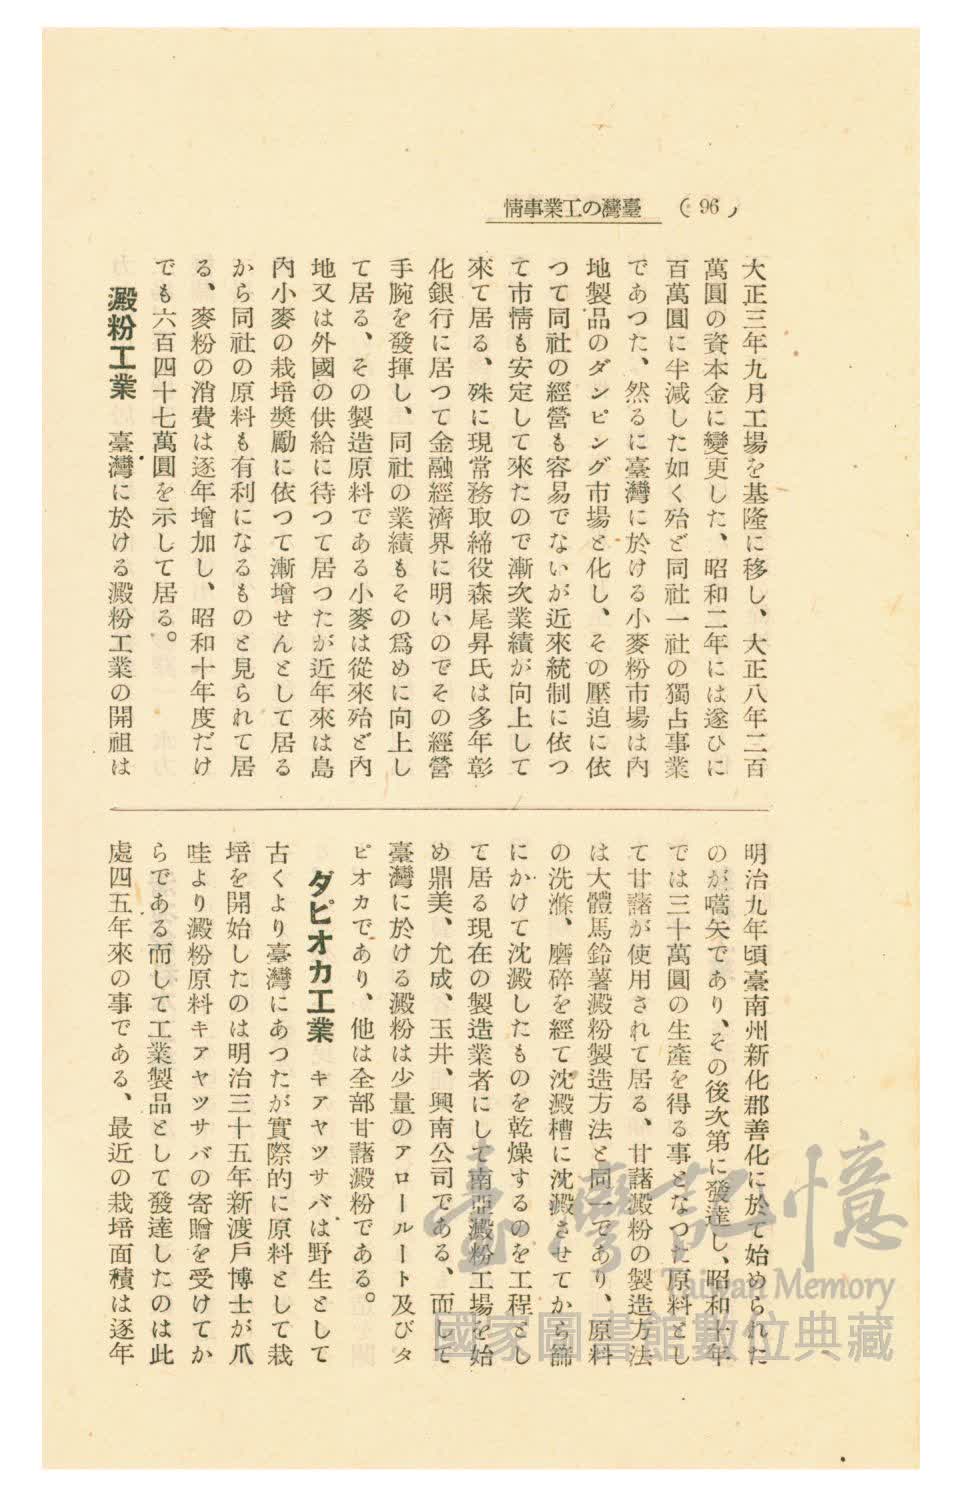 情事業工の灣臺 (96)
大正三年九月工場を基隆に移し、大正八年二百
萬圓の資本金に變更した、昭和二年には遂ひに
百萬圓に半減した如く殆ど同社一社の獨占事業
であつた、然るに臺灣に於ける小麥粉市場は內
地製品のダンピング市場と化し、その壓迫に依
つて同社の經營も容易でないが近來統制に依つ
て市情も安定して來たので漸次業績が向上して
來て居る、殊に現常務取締役森尾昇氏は多年彰
化銀行に居つて金融經濟界に明いのでその經營
手腕を發揮し、同社の業績もその爲めに向上し
て居る、その製造原料である小麥は從來殆ど內
地又は外國の供給に待つて居つたが近年來は島
內小麥の栽培獎勵に依つて漸增せんとして居る
から同社の原料も有利になるものと見られて居
る、麥粉の消費は逐年增加し、昭和十年度だけ
でも六百四十七萬圓を示して居る。
澱粉工業 臺灣に於ける澱粉工業の開祖は
明治九年頃臺南州新化郡善化に於て始められた
のが嚆矢であり、その後次第に發達し、昭和十年
では三十萬圓の生產を得る事となつた原料とし
て甘藷が使用されて居る、甘藷澱粉の製造方法
は大體馬鈴薯澱粉製造方法と同一であり、原料
の洗滌、磨碎を經て沈澱槽に沈澱させてから篩
にかけて沈澱したものを乾燥するのを工程とし
て居る現在の製造業者にして南亞澱粉工場を始
め鼎美、允成、玉井、興南公司である、而して
臺灣に於ける澱粉は少量のアロールート及びタ
ピオカであり、他は全部甘藷澱粉である。
タピオカ工業 キアヤツサバは野生として
古くより臺灣にあつたが實際的に原料として栽
培を開始したのは明治三十五年新渡戶博士が爪
哇より澱粉原料キアヤツサバの寄贈を受けてか
らである而して工業製品として發達したのは此
處四五年來の事である、最近の栽培面積は逐年
臺灣記憶
Taiwan Memory
國家圖書館數位典藏